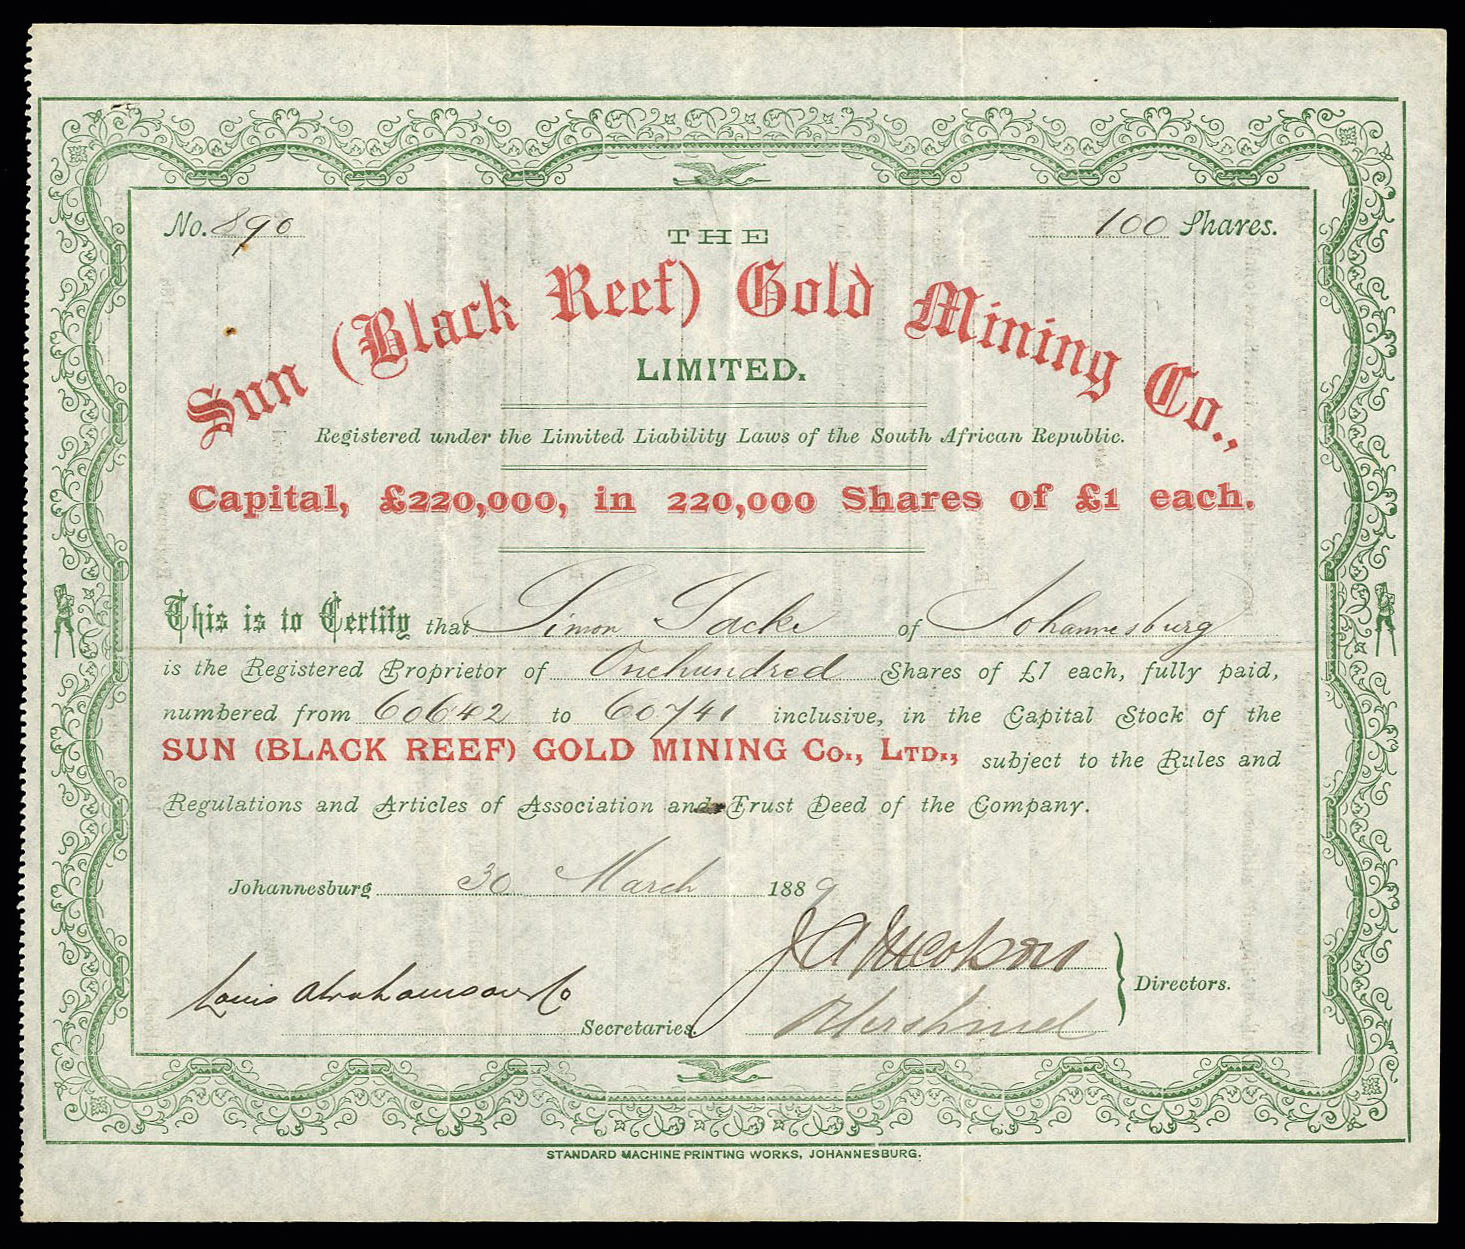 No. 890
100 Shares.
THE
Sun (Black Reef) Gold Mining Co.,
LIMITED.
Registered under the Limited Liability Laws of the South African Republic.
Capital, £220,000, in 220,000 Shares of £1 each.
This is to Certify that Simon Sacke of Johannesburg
is the Registered Proprietor of One hundred Shares of £1 each, fully paid,
numbered from 60642 to 60741 inclusive, in the Capital Stock of the
SUN (BLACK REEF) GOLD MINING Co., LTD., subject to the Rules and
Regulations and Articles of Association and Trust Deed of the Company.
Johannesburg 30 March 1889
J A Jacobson
Louis Abrahamson & Co
Directors.
Secretaries.
STANDARD MACHINE PRINTING WORKS, JOHANNESBURG.